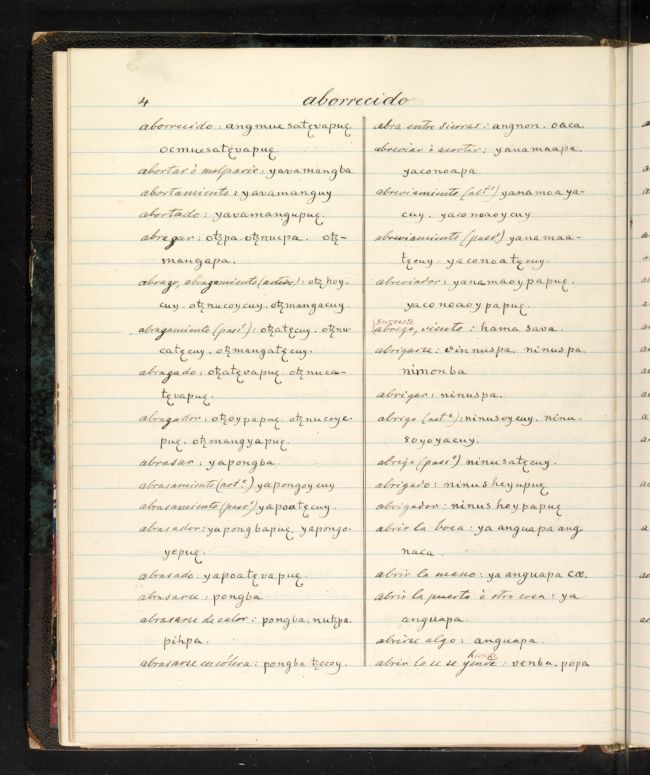 4
aborrecido
aborrecido: angmuesatęvapuę
ocmuesatęvapuę
abortar ò malparir: yavamangba
abortamiento: yavamanguy
abortado: yavamangupuę.
abraçar: otẓpa. otẓnucpa. otẓ-
mangapa.
abraço, abraçamiento (activo): otẓhoy-
cuy. otẓnucoycuy. otẓmangacuy.
abraçamiento (pasº): otẓatęcuy. otẓnu
catęcuy. otẓmangatęcuy.
abraçado: otẓatęvapuę. otẓnuca-
tęvapuę.
abraçador: otẓoypapuę. otẓnucoye-
puę. otẓmangyapuę.
abrasar: yapongba.
abrasamiento (actº) yapongoycuy
abrasamiento (pasº) yapoatęcuy.
abrasador: yapongbapuę, yapongo-
yepuę.
abrasado: yapoatęvapuę.
abrasarse: pongba
abrasarse de calor: pongba. nutẓpa.
pihpa.
abrasarse en cólera: pongba tẓocoy.
abra entre sierras: angnon. oaca.
abreviar ò acortar: yanamaapa.
yaconoapa.
abreviamiento (actº) yanamoaya-
cuy. yaconoaoycuy
abreviamiento (pasº) yanamaa-
tęcuy. yaconoatęcuy.
abreviador: yanamaoypapuę.
yaconoaoypapuę.
sudoeste
abrego, viento: hama sava.
abrigarse: vinnuspa. ninuspa.
nimonba
abrigar: ninuspa.
abrigo (actº): ninusoycuy. ninu-
soyoyacuy.
abrigo (pasº) ninusatęcuy.
abrigado: ninusheyupuę
abrigador: ninushoypapuę
abrir la boca: ya anguapa ang
naca.
abrir la mano: ya anguapa cæ.
abrir la puerta ò otra cosa: ya
anguapa.
abrirse algo: anguapa.
hiende
abrir lo que se : venba. popa